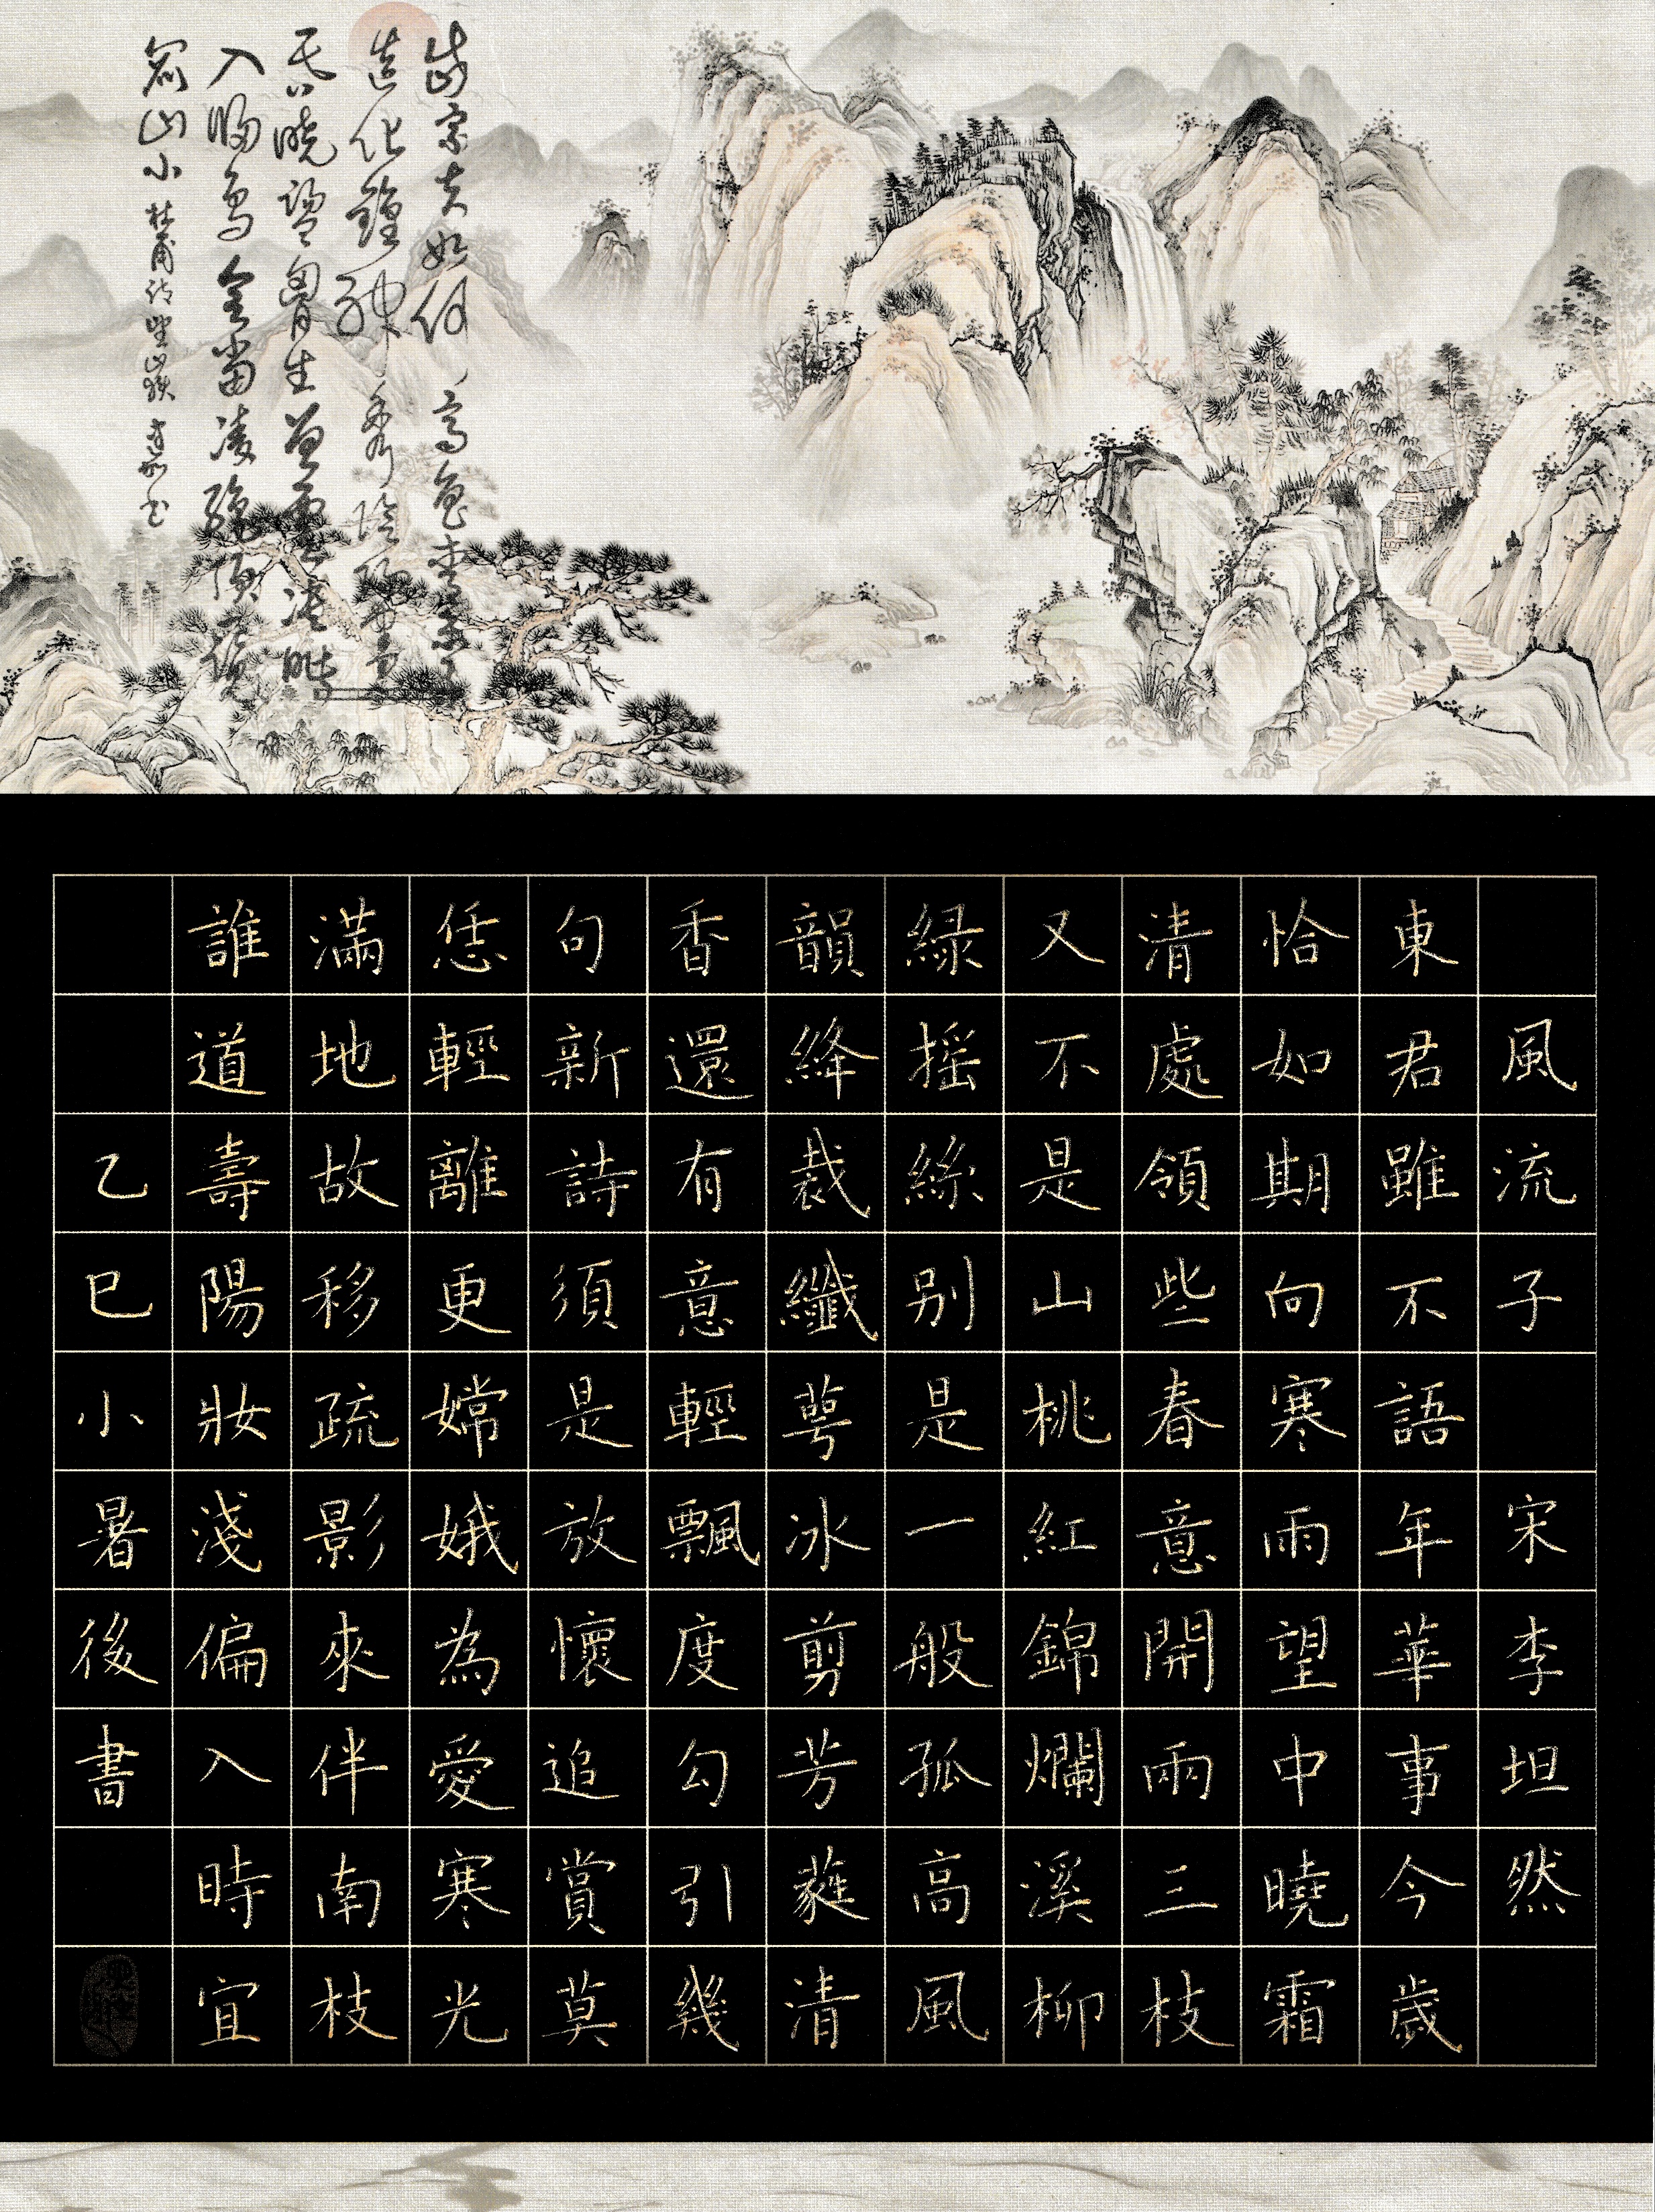 岱宗夫如何齊魯青未了
造化鍾神秀陰陽割
昏曉盪胸生曾雲決眥
入歸鳥會當凌絕頂一覽
衆山小 杜甫詩望嶽
風流子 宋李坦然
東君雖不語年華事今歲
恰如期向寒雨望中曉霜
清處領些春意開兩三枝
又不是山桃紅錦爛溪柳
緑摇絲别是一般孤高風
韻絳裁纖萼冰剪芳蕤清
香還有意輕飄度勾引幾
句新詩須是放懷追賞莫
恁輕離更嫦娥為愛寒光
滿地故移疏影來伴南枝
誰道壽陽妝淺偏入時宜
乙巳小暑後書